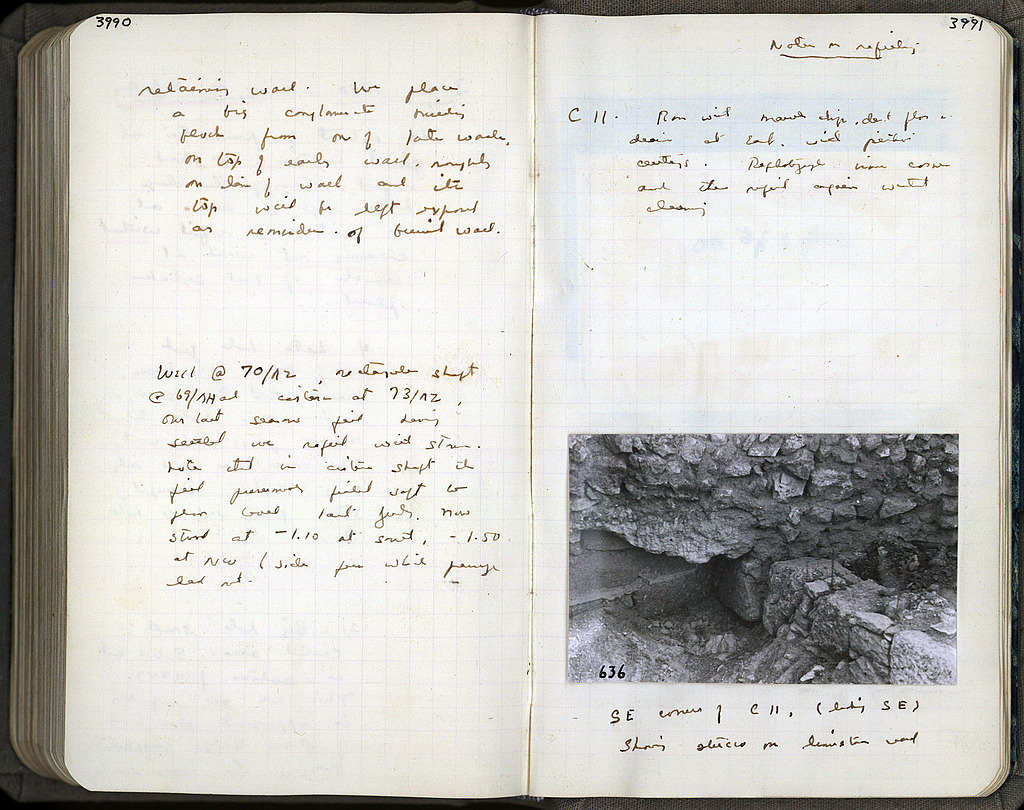 3990
retaining wall. We place
a big conglomerate building
block from one of late walls,
on top of early wall, roughly
on line of wall and its
top will be left exposed
as reminder of buried wall.
Well @ 70/ΛΖ, rectangular shaft
@ 69/ and cistern at 73/ΛΖ,
our last season fill having
settled we refill with stone.
Note that in cistern shaft the
fill previously filled left to
level last July. Now
stood at -1.10 at south, -1.50
at NW (side from which passage
led out.
3991
Notes on refilling
C 11. Room with marble chip, dest floor &
drain at East, with
cuttings. Rephotograph corner
and then refill again without
cleaning
636
SE corner of C 11, (looking SE)
Showing stucco on limestone wall